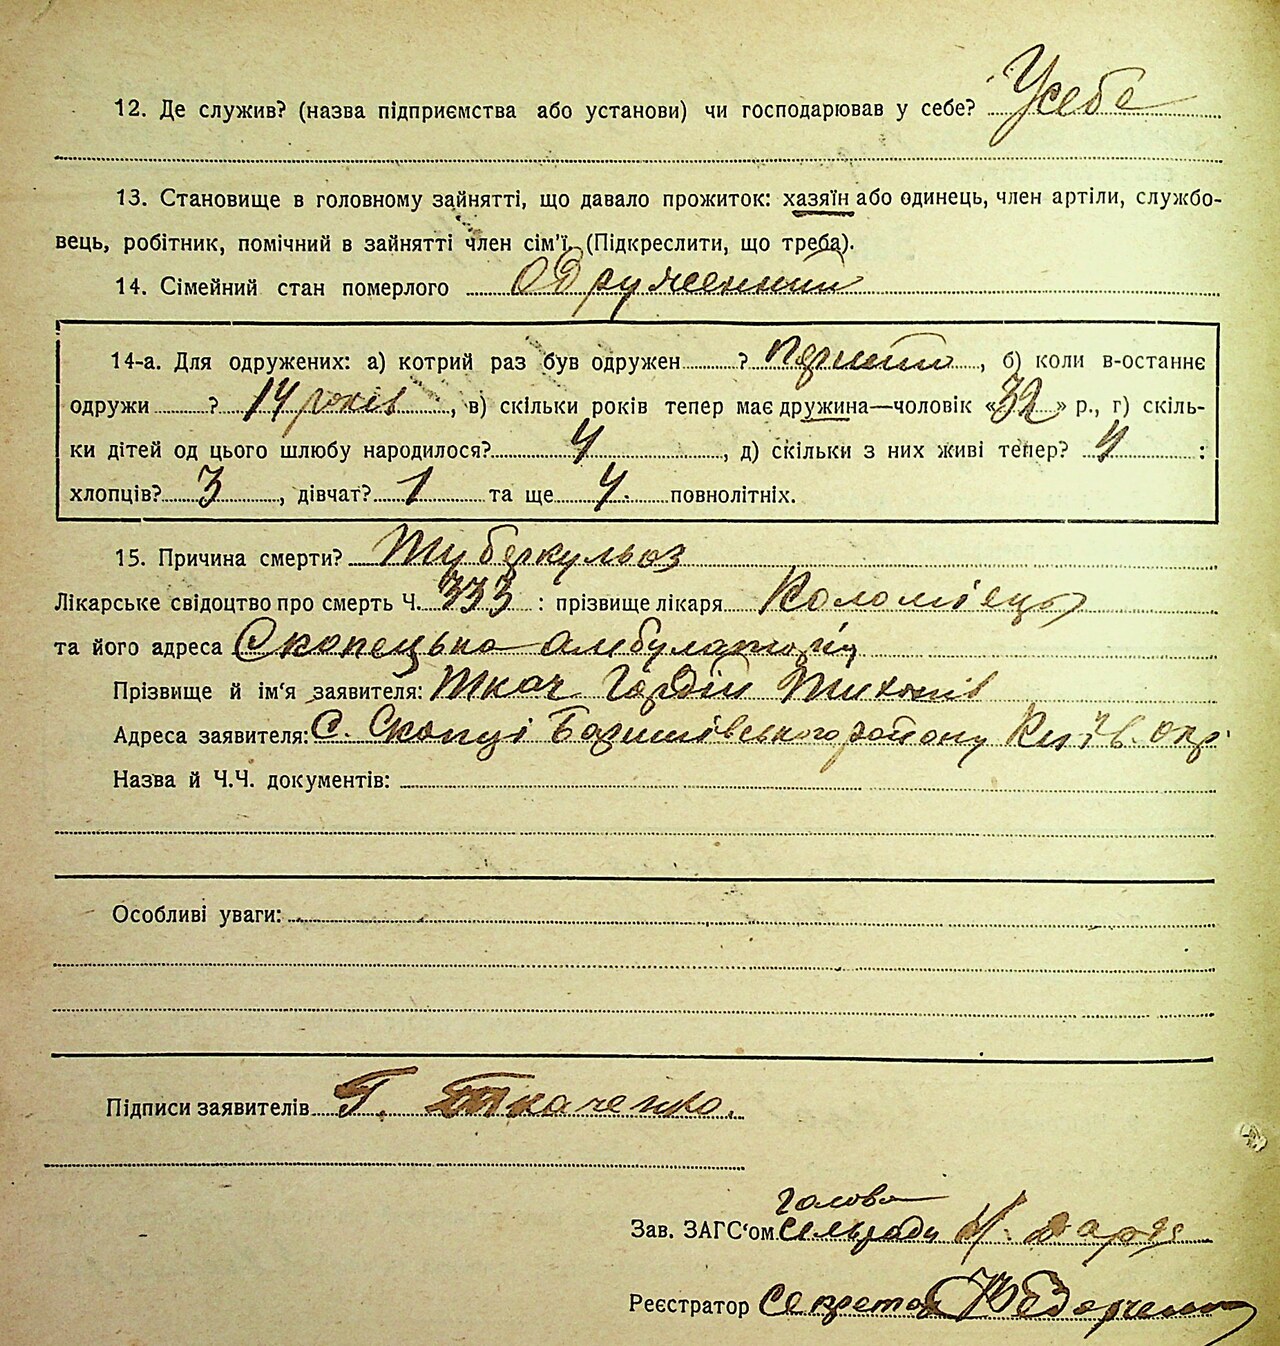 12. Де служив? (назва підприємства або установи) чи господарював у себе? Усебе
13. Становище в головному зайнятті, що давало прожиток: хазяїн або одинець, член артіли, службо-
вець, робітник, помічний в зайнятті член сім'ї. (Підкреслити, що треба).
14. Сімейний стан померлого одружений
14-а. Для одружених: а) котрий раз був одружен ? , б) коли в-останнє
одружи ? 14 років, в) скільки років тепер має дружина—чоловік «32» р., г) скіль-
ки дітей од цього шлюбу народилося? 4, д) скільки з них живі тепер? 4 :
хлопців? 3, дівчат? 1 та ще 4. повнолітніх.
15. Причина смерти? Туберкульоз
Лікарське свідоцтво про смерть Ч. 333 : прізвище лікаря Коломієць
та його адреса Скопецька амбулаторія
Прізвище й ім'я заявителя: Ткач Гордій Тихонів
Адреса заявителя: С. Скопці Баришівського району Київ. окр.
Назва й Ч.Ч. документів:
Особливі уваги:
Підписи заявителів Г. Ткаченко.
Голова
Зав. ЗАГС'ом сельради
Реєстратор Секретар